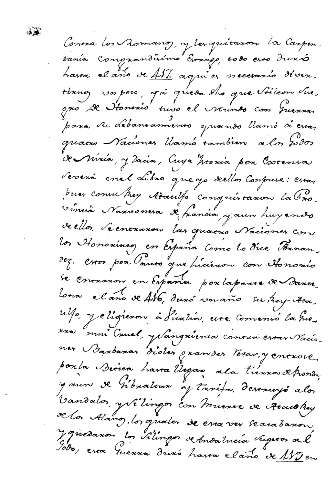 Contra los Romanos, y les quitaron la Carpe
tania con grandissimo Estrago, todo esto duró
hasta el año de 417 aqui es necesario diver
tirnos un poco, ya queda dho que Stilcon Sue
gro de Honorio tuvo el Mundo con Guerras
para su quando llamó á estas
quatro Naciones llamó tambien a los Godos
de Misia, y Dacia, Cuya Istoria por Extenso
severá en el Libro que yo de ellos Compuse: estos
pues con su Rey Ataulfo conquistaron la Pro
vincia Narvonense de francia, y aun huyendo
de ellos, se entraron las quatro Naciones con
los Honoriacos en España como lo dice Fernan
dez. estos por Pacto que hicieron con Honorio
se entraron en España por la parte de Barce
lona el año de 416, duró un año su Rey Ata
ulfo, y eligieron a Vualia, este comenzó la Gue
rra mui Cruel, y Sangrienta contra estas Nacio
nes Barbaras dioles grandes Rotas, y entrose
por la Betica hasta llegar a la tierra de Ronda,
y aun de Gibraltar y Tarifa, destruyó a los
Vandalos, y Silingos con Muerte de Atace Rey
de los Alanos, los quales de esta vez se acabaron,
y quedaron los Silingos de Andalucia sugetos al
Godo, esta Guerra duró hasta el año de 417 en